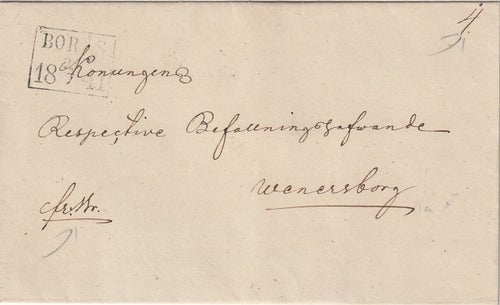 4.
BORÅS
18 41
Konungens
Respective Befallningshafwande
Wenersborg
fr: Br.